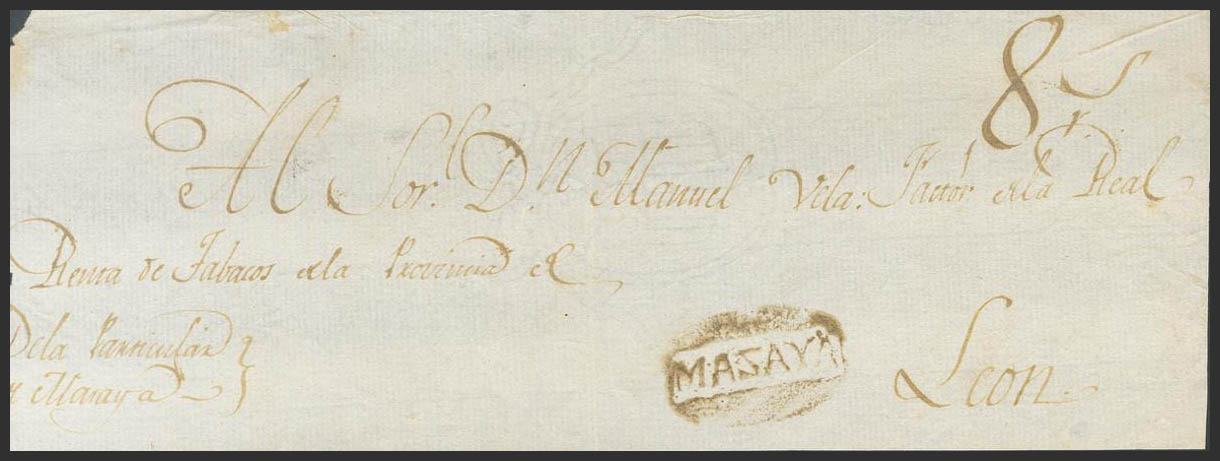 8 rs
Al Sor. Dn. Manuel Vela: Factor de la Real
Renta de Tabacos de la Provincia de
Dela Particular
Masaya
MASAYA
Leon.